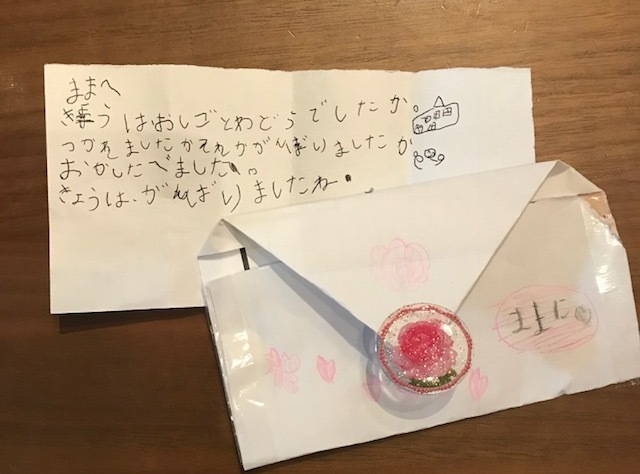 ままへ
きょうはおしごとわどうでしたか。
つかれましたかそれかがんばりましたか
おかしたべました。
きょうは、がんばりましたね。
ままに